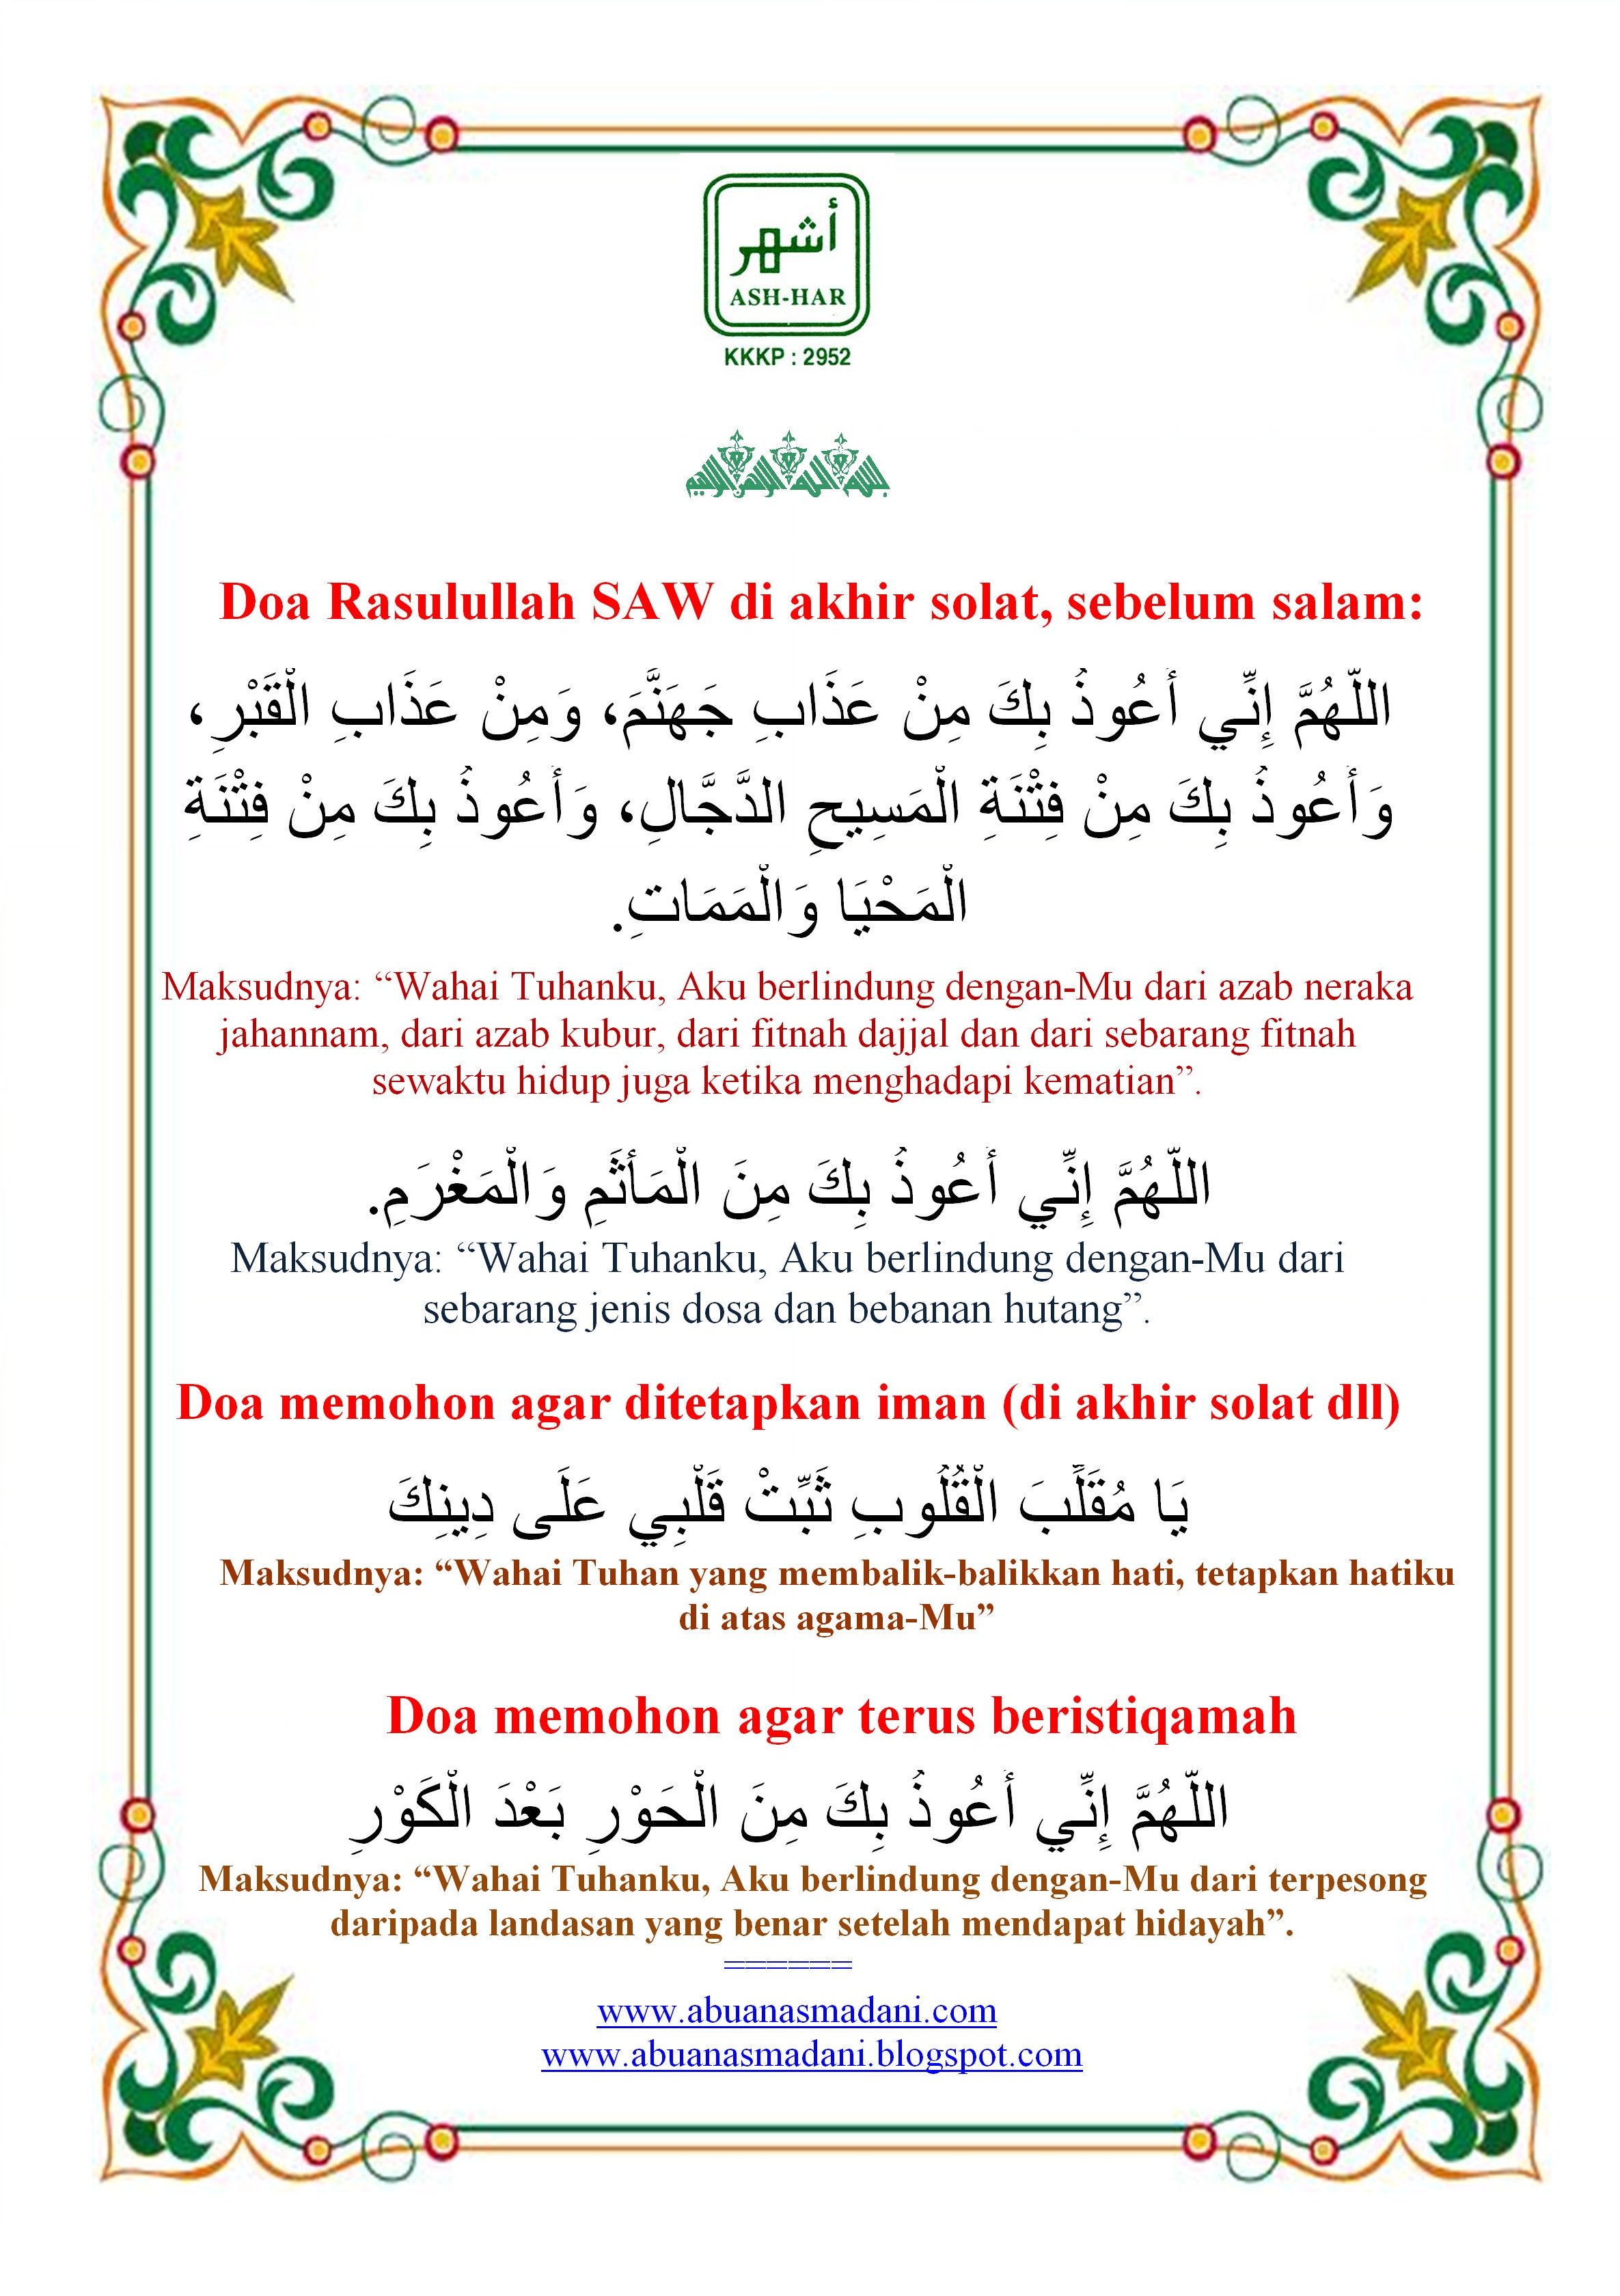 أشهر
ASH-HAR
KKKP : 2952
بسم الله الرحمن الرحيم
Doa Rasulullah SAW di akhir solat, sebelum salam:
اللّهُمَّ إِنِّي أَعُوذُ بِكَ مِنْ عَذَابِ جَهَنَّمَ، وَمِنْ عَذَابِ الْقَبْرِ،
وَأَعُوذُ بِكَ مِنْ فِتْنَةِ الْمَسِيحِ الدَّجَّالِ، وَأَعُوذُ بِكَ مِنْ فِتْنَةِ
الْمَحْيَا وَالْمَمَاتِ.
Maksudnya: “Wahai Tuhanku, Aku berlindung dengan-Mu dari azab neraka
jahannam, dari azab kubur, dari fitnah dajjal dan dari sebarang fitnah
sewaktu hidup juga ketika menghadapi kematian”.
اللّهُمَّ إِنِّي أَعُوذُ بِكَ مِنَ الْمَأثَمِ وَالْمَغْرَمِ.
Maksudnya: “Wahai Tuhanku, Aku berlindung dengan-Mu dari
sebarang jenis dosa dan bebanan hutang”.
Doa memohon agar ditetapkan iman (di akhir solat dll)
يَا مُقَلِّبَ الْقُلُوبِ ثَبِّتْ قَلْبِي عَلَى دِينِكَ
Maksudnya: “Wahai Tuhan yang membalik-balikkan hati, tetapkan hatiku
di atas agama-Mu”
Doa memohon agar terus beristiqamah
اللّهُمَّ إِنِّي أَعُوذُ بِكَ مِنَ الْحَوْرِ بَعْدَ الْكَوْرِ
Maksudnya: “Wahai Tuhanku, Aku berlindung dengan-Mu dari terpesong
daripada landasan yang benar setelah mendapat hidayah”.
======
www.abuanasmadani.com
www.abuanasmadani.blogspot.com